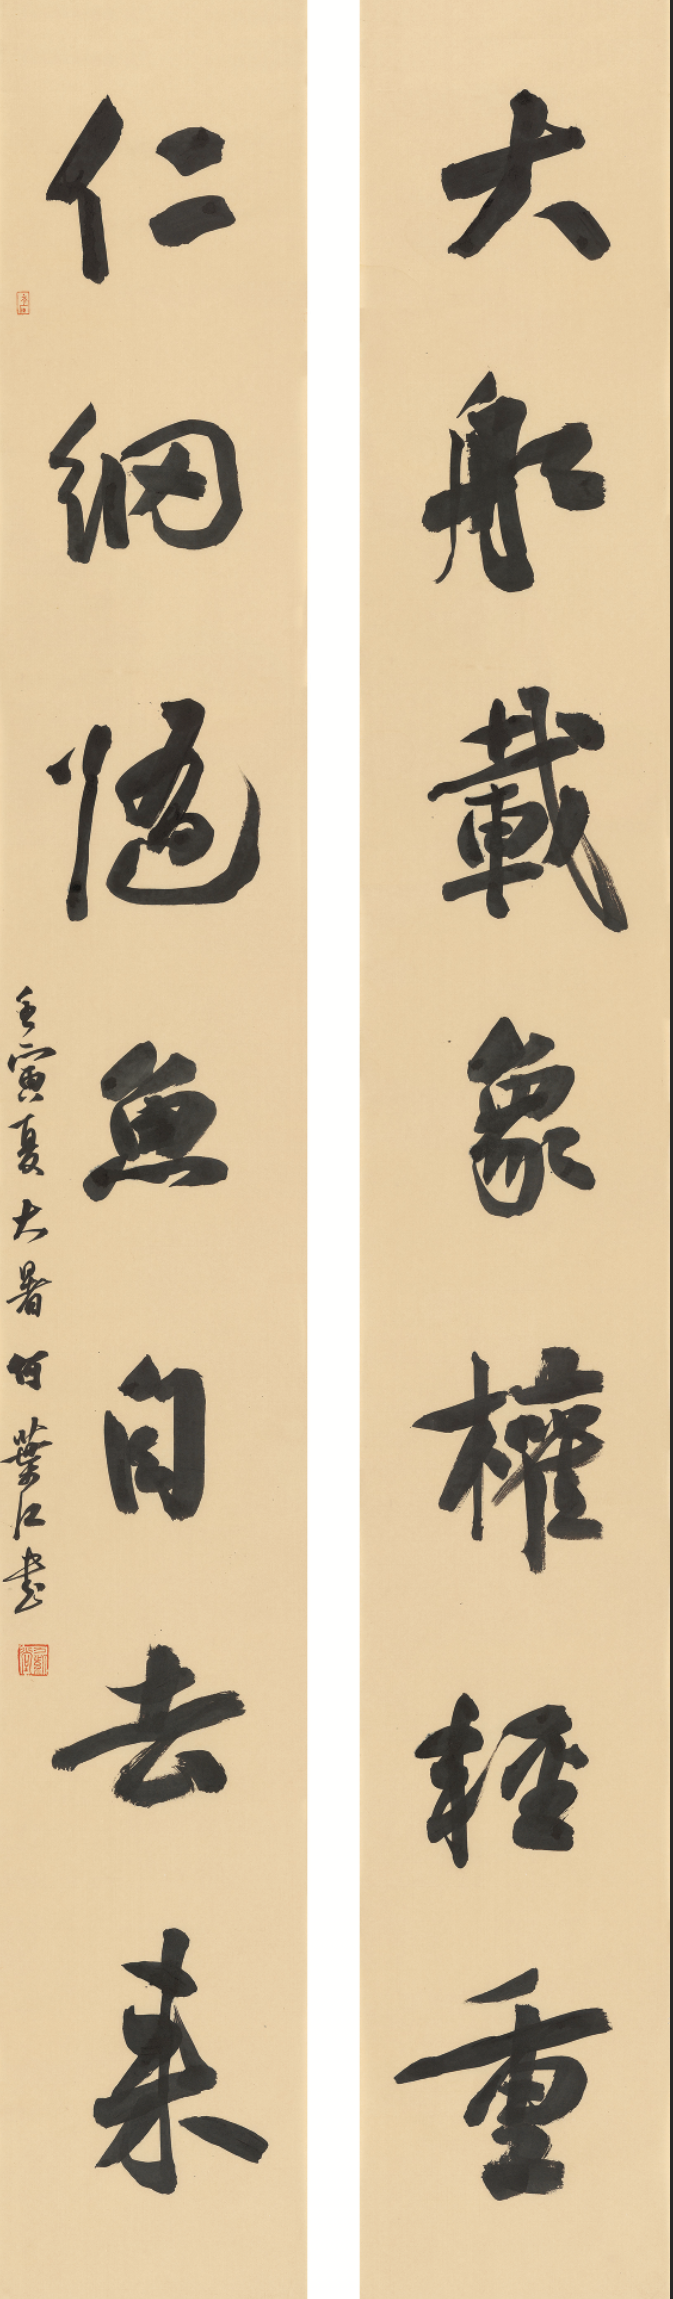 大船載象權輕重
仁網隨魚自去來
壬寅夏大暑何葉江書